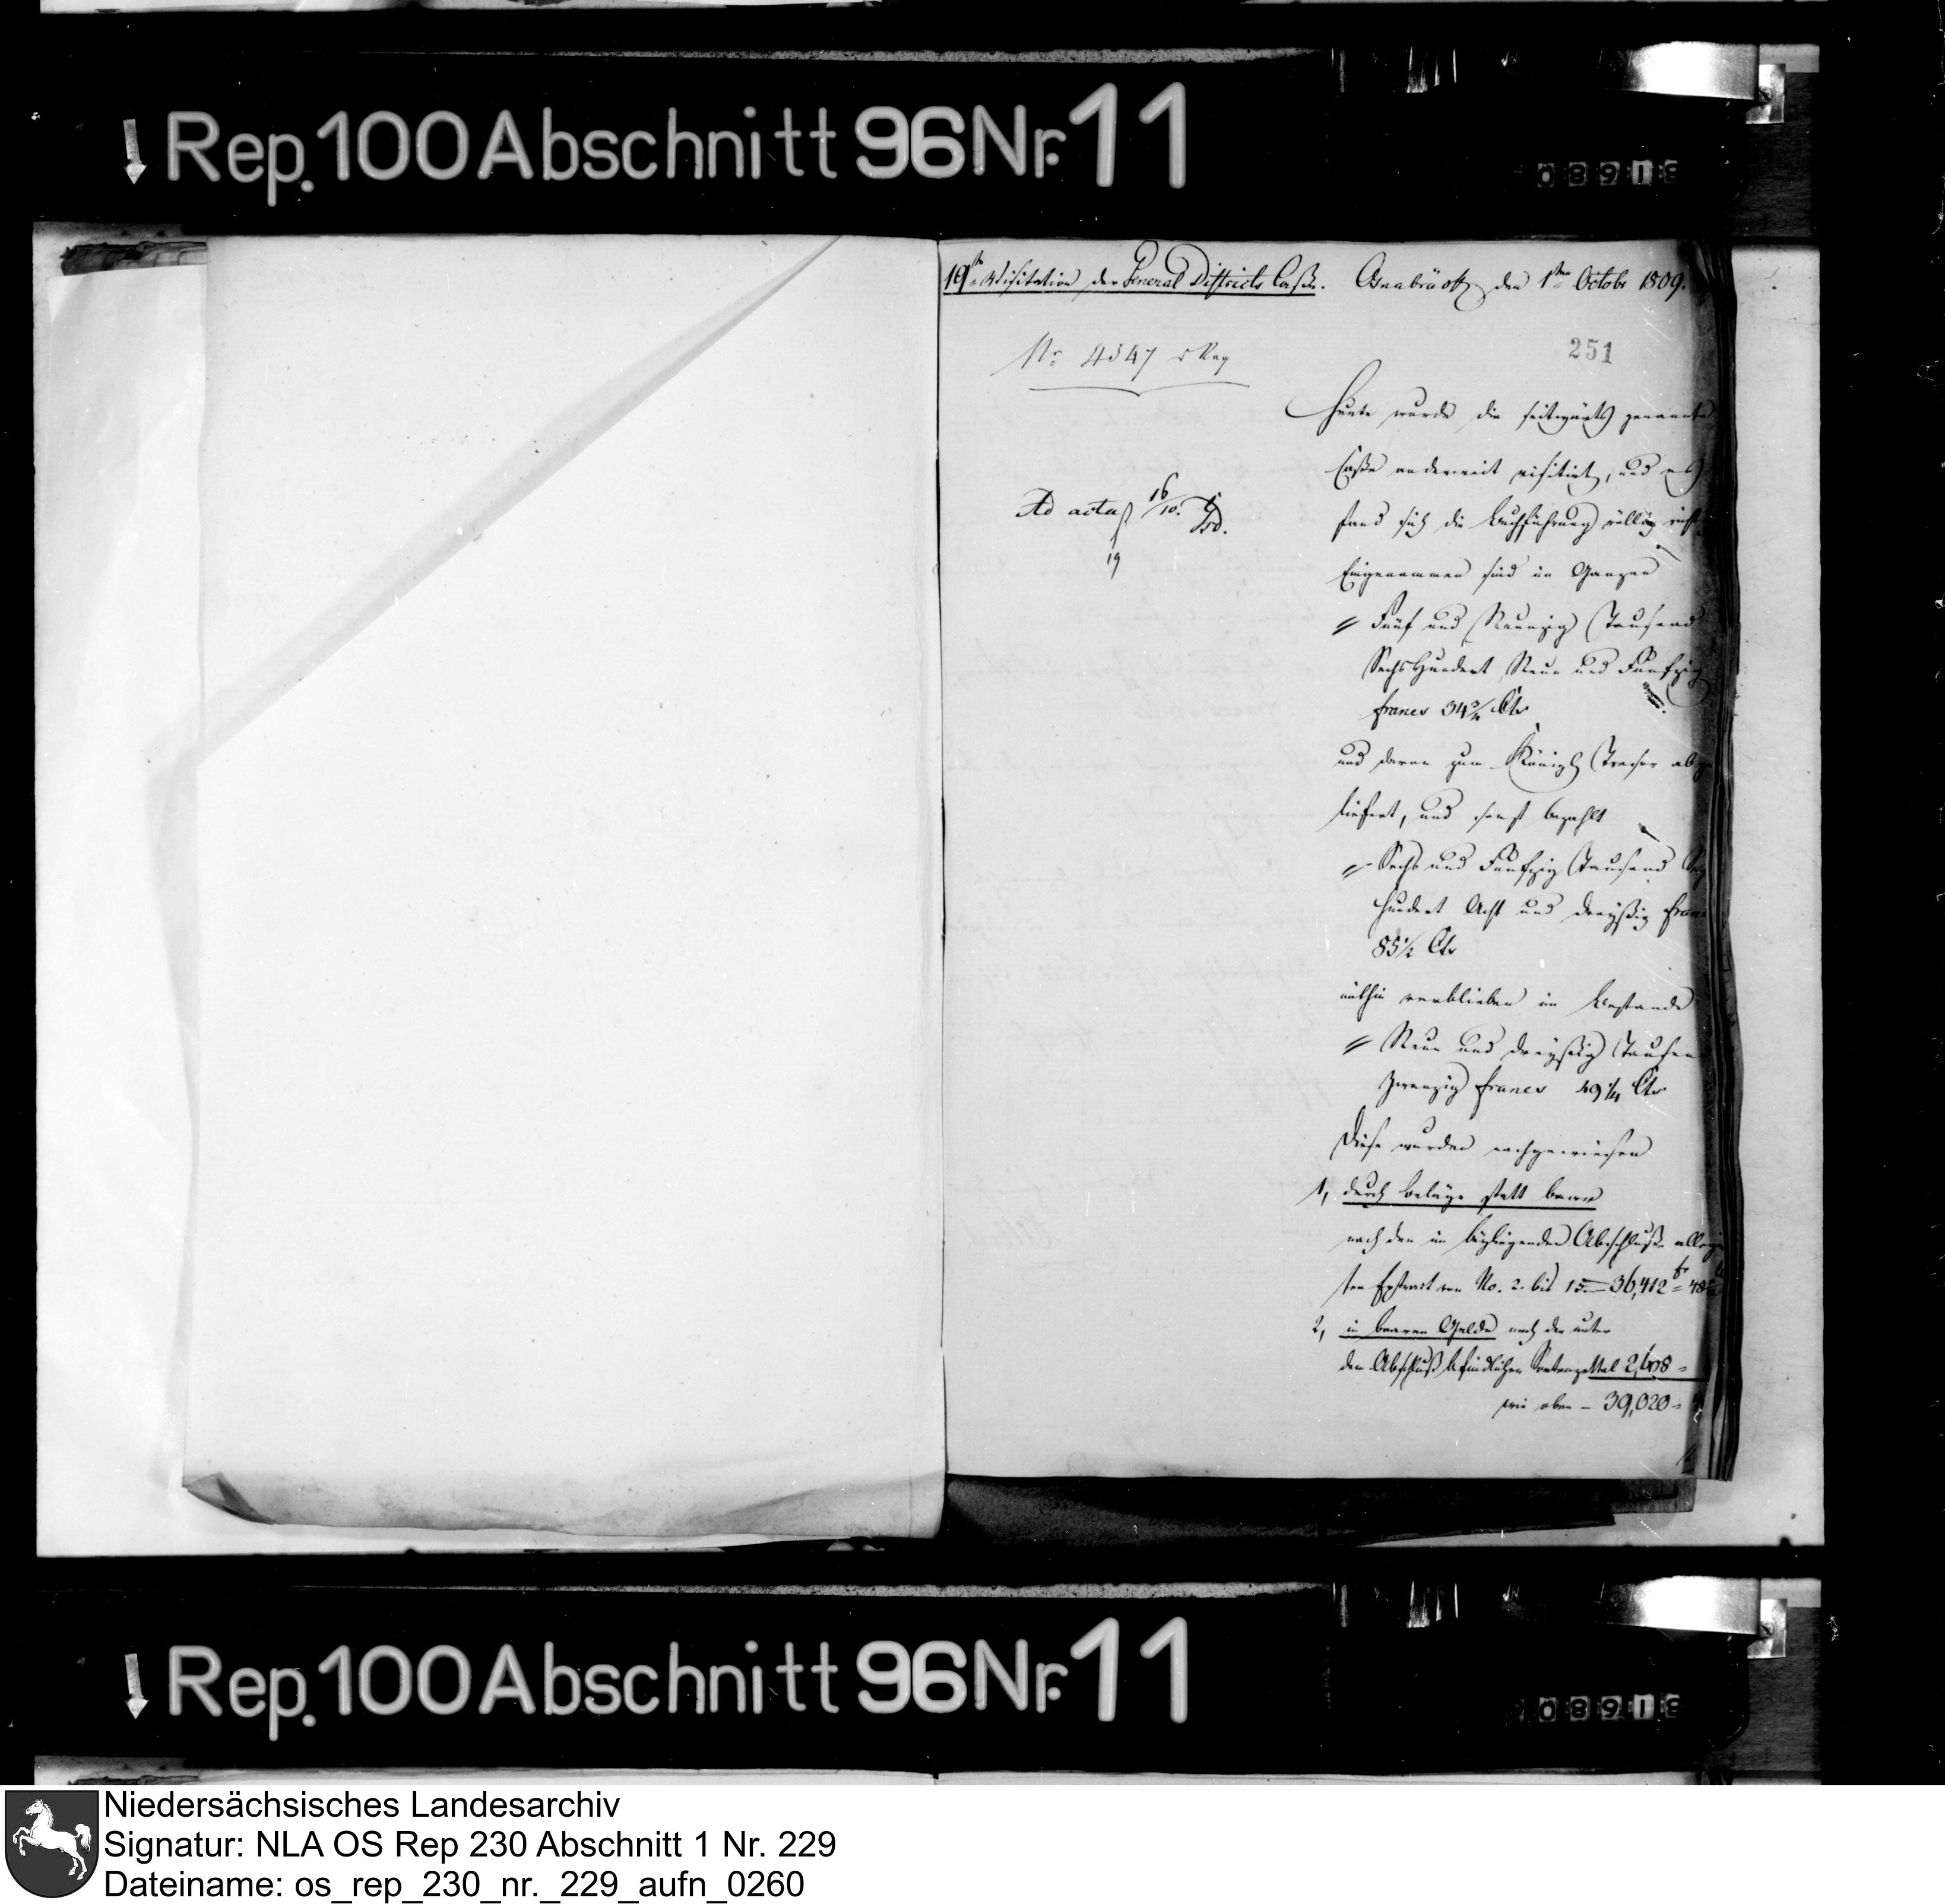 Rep. 100 Abschnitt 96 Nr. 11
08918
19te Visitation der General Districts Casse. Osnabrück den 1ten Octobr 1809.
251
Nr 4547
Ad acta 16/10.
19
Heute wurde die seitwärts genannte
Casse anderweit visitirt, und es
fand sich die Buchführung völlig
Eingenommen sind im Ganzen
Fünf und Neunzig Tausend
Sechs Hundert Neun und Fünfzig
francs 34 3/4 Cts
und davon zum Königl Tresor abge
liefert, und sonst bezahlt
Sechs und Fünfzig Tausend
hundert Acht und dreyßig
85 1/2 Cts
mithin verblieben im Bestande
Neun und dreyßig Tausend
zwanzig francs 49 1/4 Cts
Diese wurden nachgewiesen
1, durch beläge statt baar
nach den im beyliegenden Abschluße
ten Extract von No. 2. bis 15 = 36,412 fr 48
2, in baaren Gelde nach der unter
dem Abschluß befindlichen Sortenzettel 2,608 =
wie oben - 39,020 =
Rep. 100 Abschnitt 96 Nr. 11
08918
Niedersächsisches Landesarchiv
Signatur: NLA OS Rep 230 Abschnitt 1 Nr. 229
Dateiname: os_rep_230_nr._229_aufn_0260